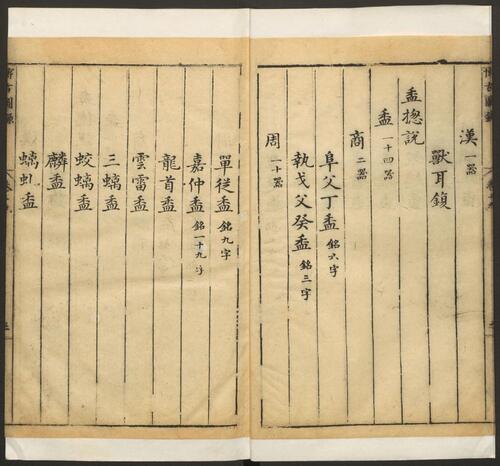 漢 一器
獸耳鍑
盉揔說
盉 一十四器
商 二器
阜父丁盉 銘六字
執戈父癸盉 銘三字
周 一十器
單從盉 銘九字
嘉仲盉 銘一十九字
龍首盉
雲雷盉
三螭盉
蛟螭盉
麟盉
螭虬盉